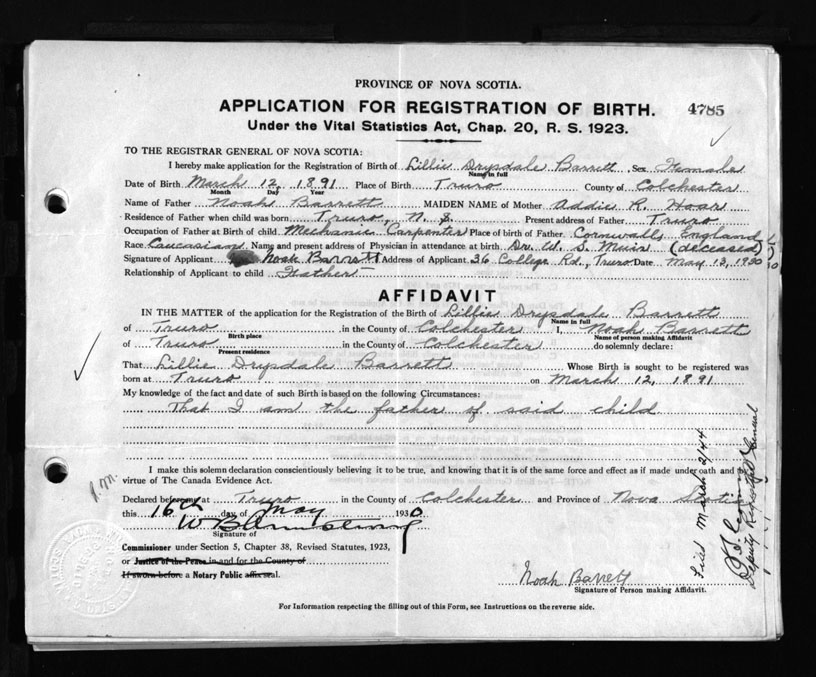 PROVINCE OF NOVA SCOTIA.
APPLICATION FOR REGISTRATION OF BIRTH. 4785
Under the Vital Statistics Act, Chap. 20, R. S. 1923.
TO THE REGISTRAR GENERAL OF NOVA SCOTIA:
I hereby make application for the Registration of Birth of Lillie Drysdale Barrett Sex Female
Name in full
Date of Birth March 12, 1891 Place of Birth Truro County of Colchester
Month Day Year
Name of Father Noah Barrett MAIDEN NAME of Mother Addie R. Hoar
Residence of Father when child was born Truro, N. S. Present address of Father Truro
Occupation of Father at Birth of child Mechanic Carpenter Place of birth of Father Cornwall, England
Race Caucasian Name and present address of Physician in attendance at birth Dr. W. S. Muir (deceased)
Signature of Applicant Noah Barrett Address of Applicant 36 College Rd., Truro Date May 12, 1930
Relationship of Applicant to child Father
AFFIDAVIT
IN THE MATTER of the application for the Registration of the Birth of Lillie Drysdale Barrett
Name in full
of Truro in the County of Colchester I, Noah Barrett
Birth place Name of person making Affidavit
of Truro in the County of Colchester do solemnly declare:
Present residence
That Lillie Drysdale Barrett Whose Birth is sought to be registered was
born at Truro on March 12, 1891
My knowledge of the fact and date of such Birth is based on the following Circumstances:
That I am the father of said child
I make this solemn declaration conscientiously believing it to be true, and knowing that it is of the same force and effect as if made under oath and by
virtue of The Canada Evidence Act.
Declared before me at Truro in the County of Colchester and Province of Nova Scotia
this 16th day of May 1930
Signature of
Commissioner under Section 5, Chapter 38, Revised Statutes, 1923,
or Justice of the Peace in and for the County of
If sworn before a Notary Public affix seal.
Noah Barrett
Signature of Person making Affidavit.
For Information respecting the filling out of this Form, see Instructions on the reverse side.
Filed March 2/44
Deputy Registrar General